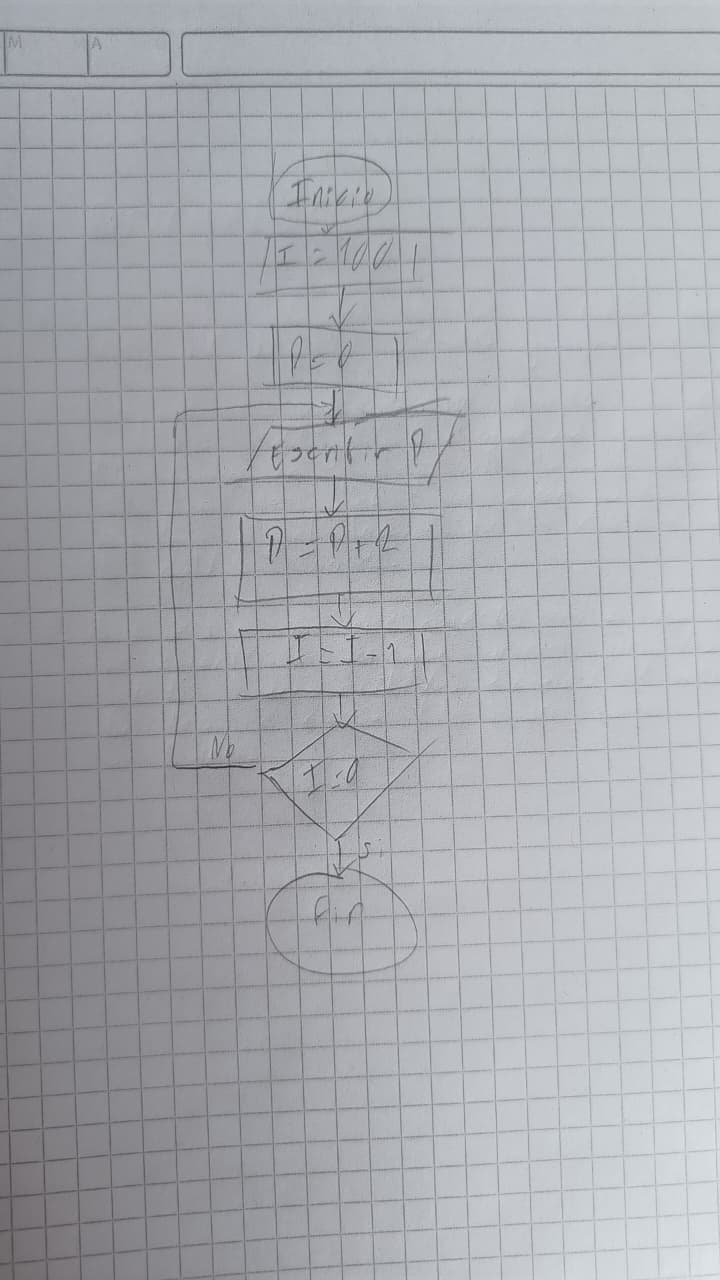 M A
Inicio
I = 100
P = 0
Escribir P
P = P + 2
I = I - 1
No
I = 0
Si
Fin